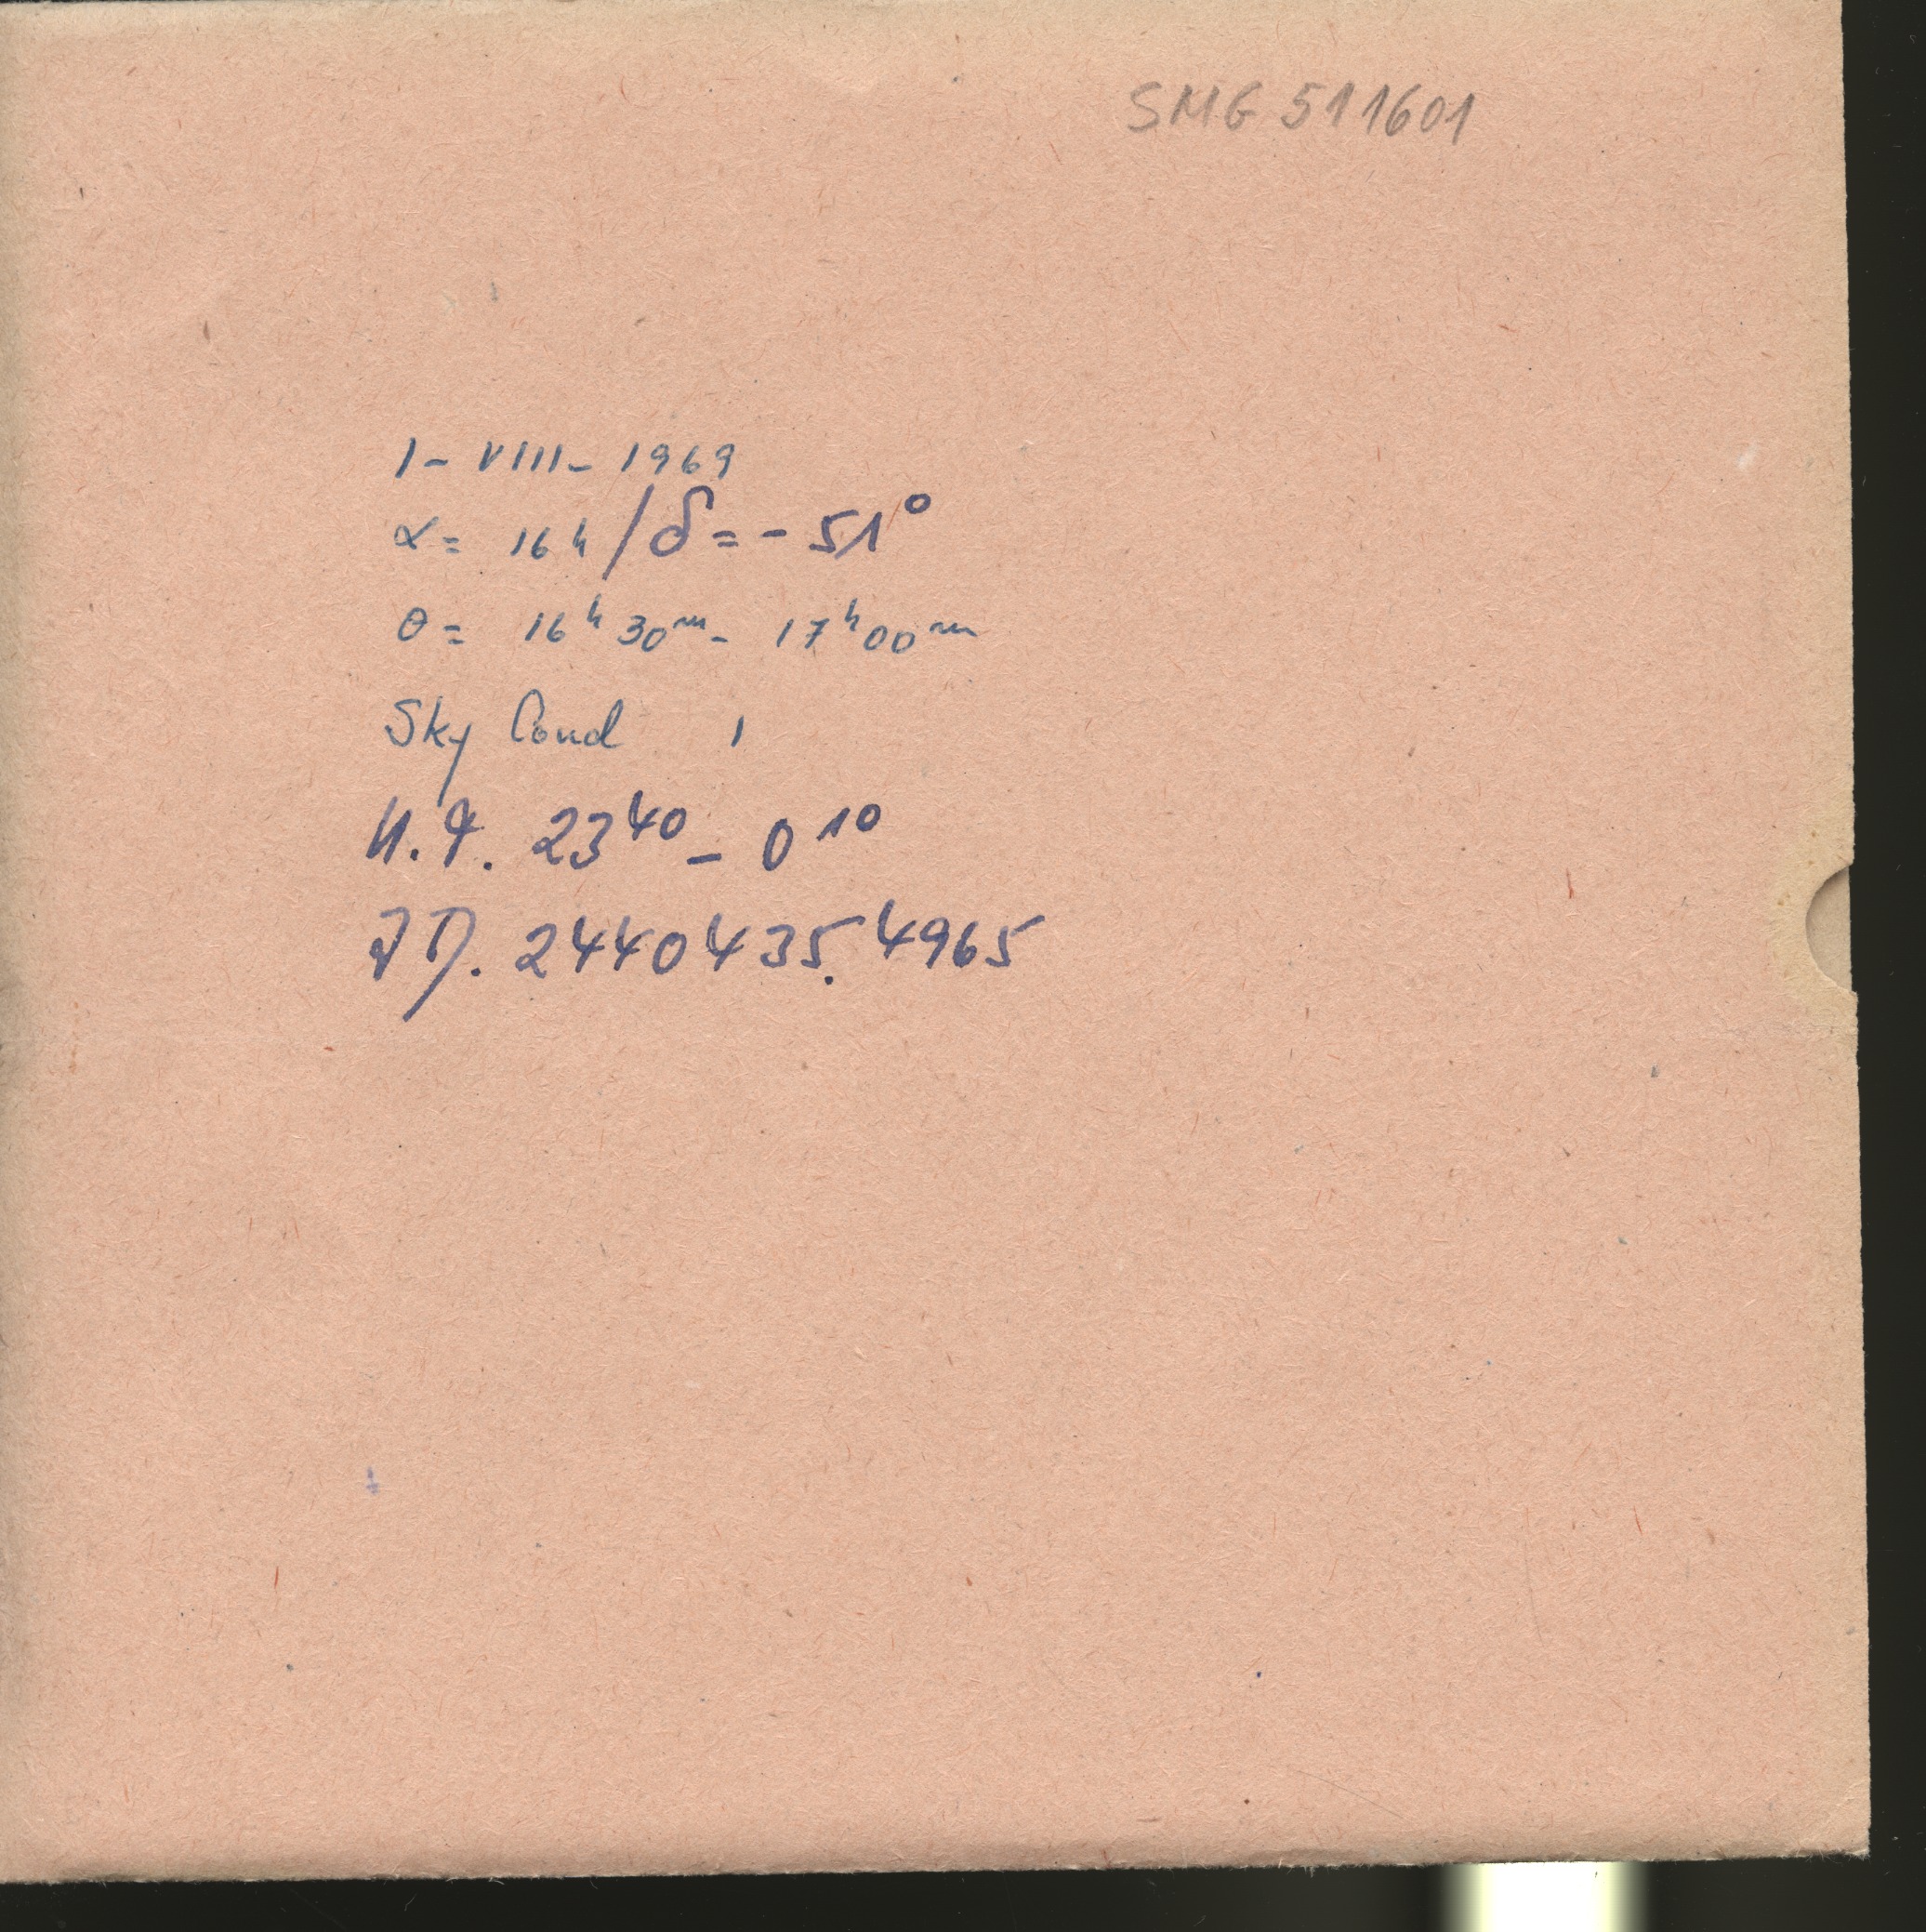 SMG 511601
1 - VIII - 1969
α = 16h / δ = - 51°
θ = 16ʰ 30ᵐ - 17ʰ 00ᵐ
Sky Cond 1
U.T. 23⁴⁰ - 0¹⁰
JD. 2440435.4965